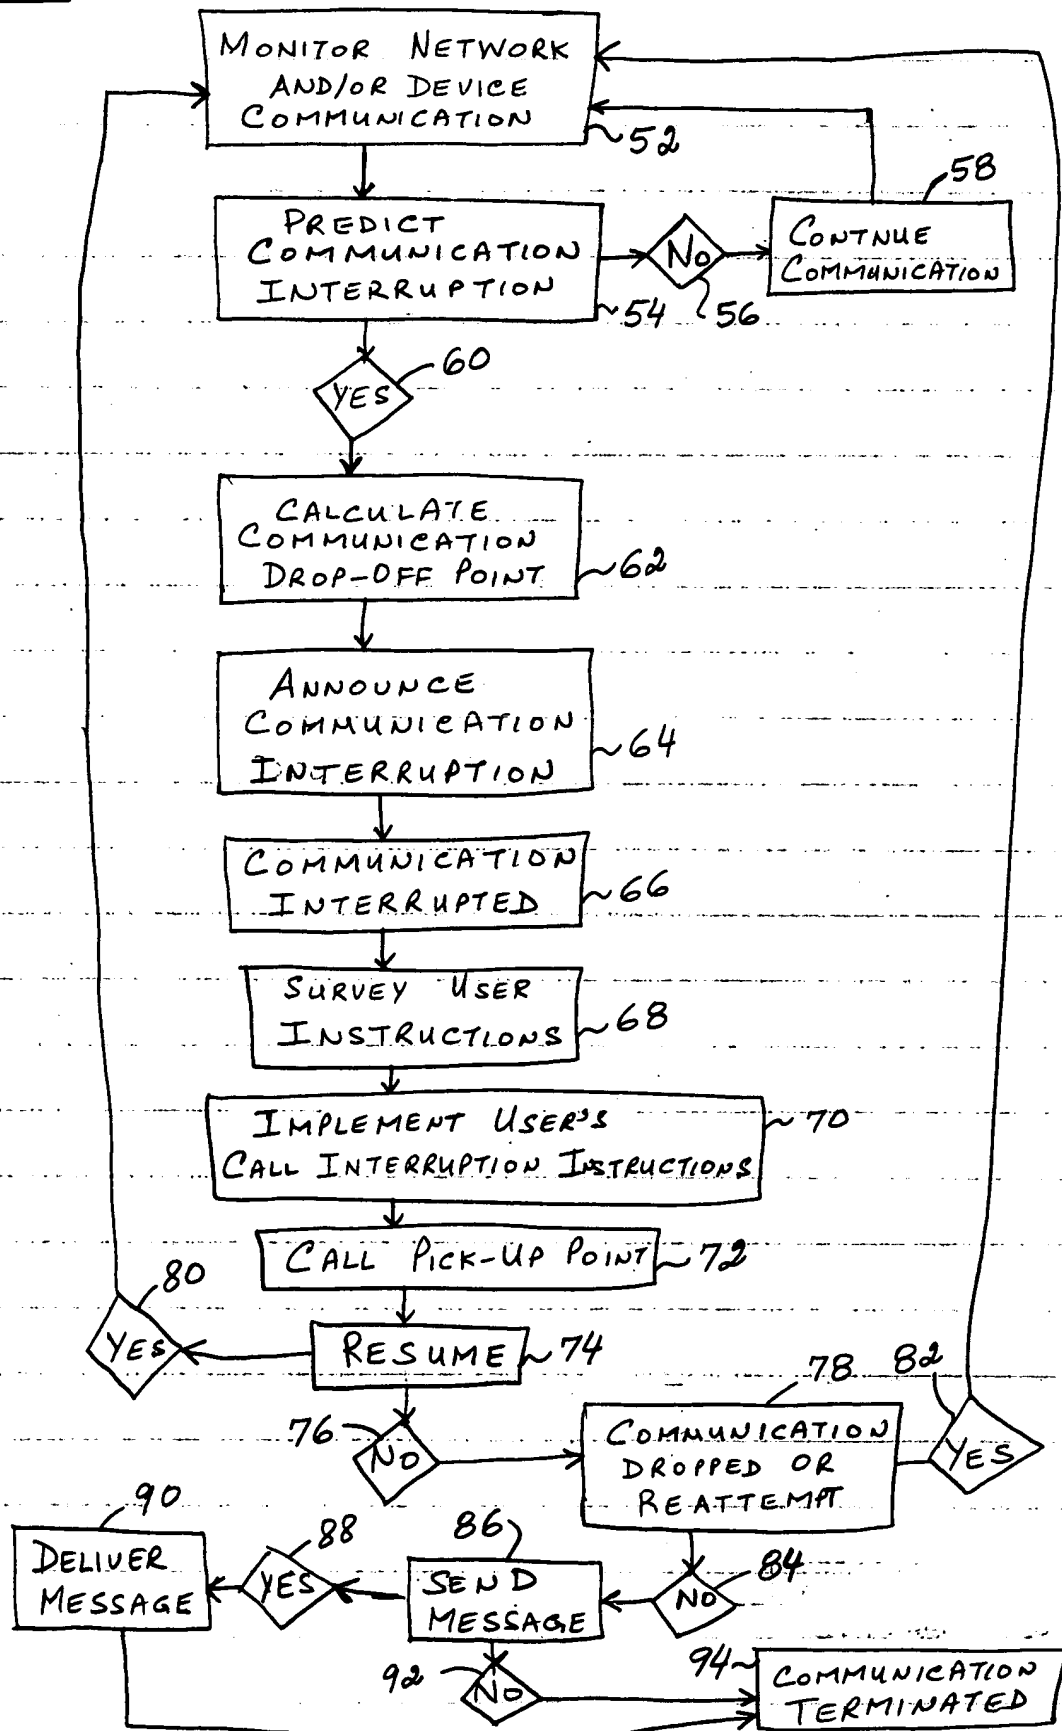 MONITOR NETWORK
AND/OR DEVICE
COMMUNICATION
52
PREDICT
COMMUNICATION
INTERRUPTION
54
NO
56
58
CONTNUE
COMMUNICATION
60
YES
CALCULATE
COMMUNICATION
DROP-OFF POINT
62
ANNOUNCE
COMMUNICATION
INTERRUPTION
64
COMMUNICATION
INTERRUPTED
66
SURVEY USER
INSTRUCTIONS
68
IMPLEMENT USER'S
CALL INTERRUPTION INSTRUCTIONS
70
CALL PICK-UP POINT
72
80
YES
RESUME
74
76
NO
78
COMMUNICATION
DROPPED OR
REATTEMPT
82
YES
84
NO
86
SEND
MESSAGE
88
YES
90
DELIVER
MESSAGE
92
NO
94
COMMUNICATION
TERMINATED